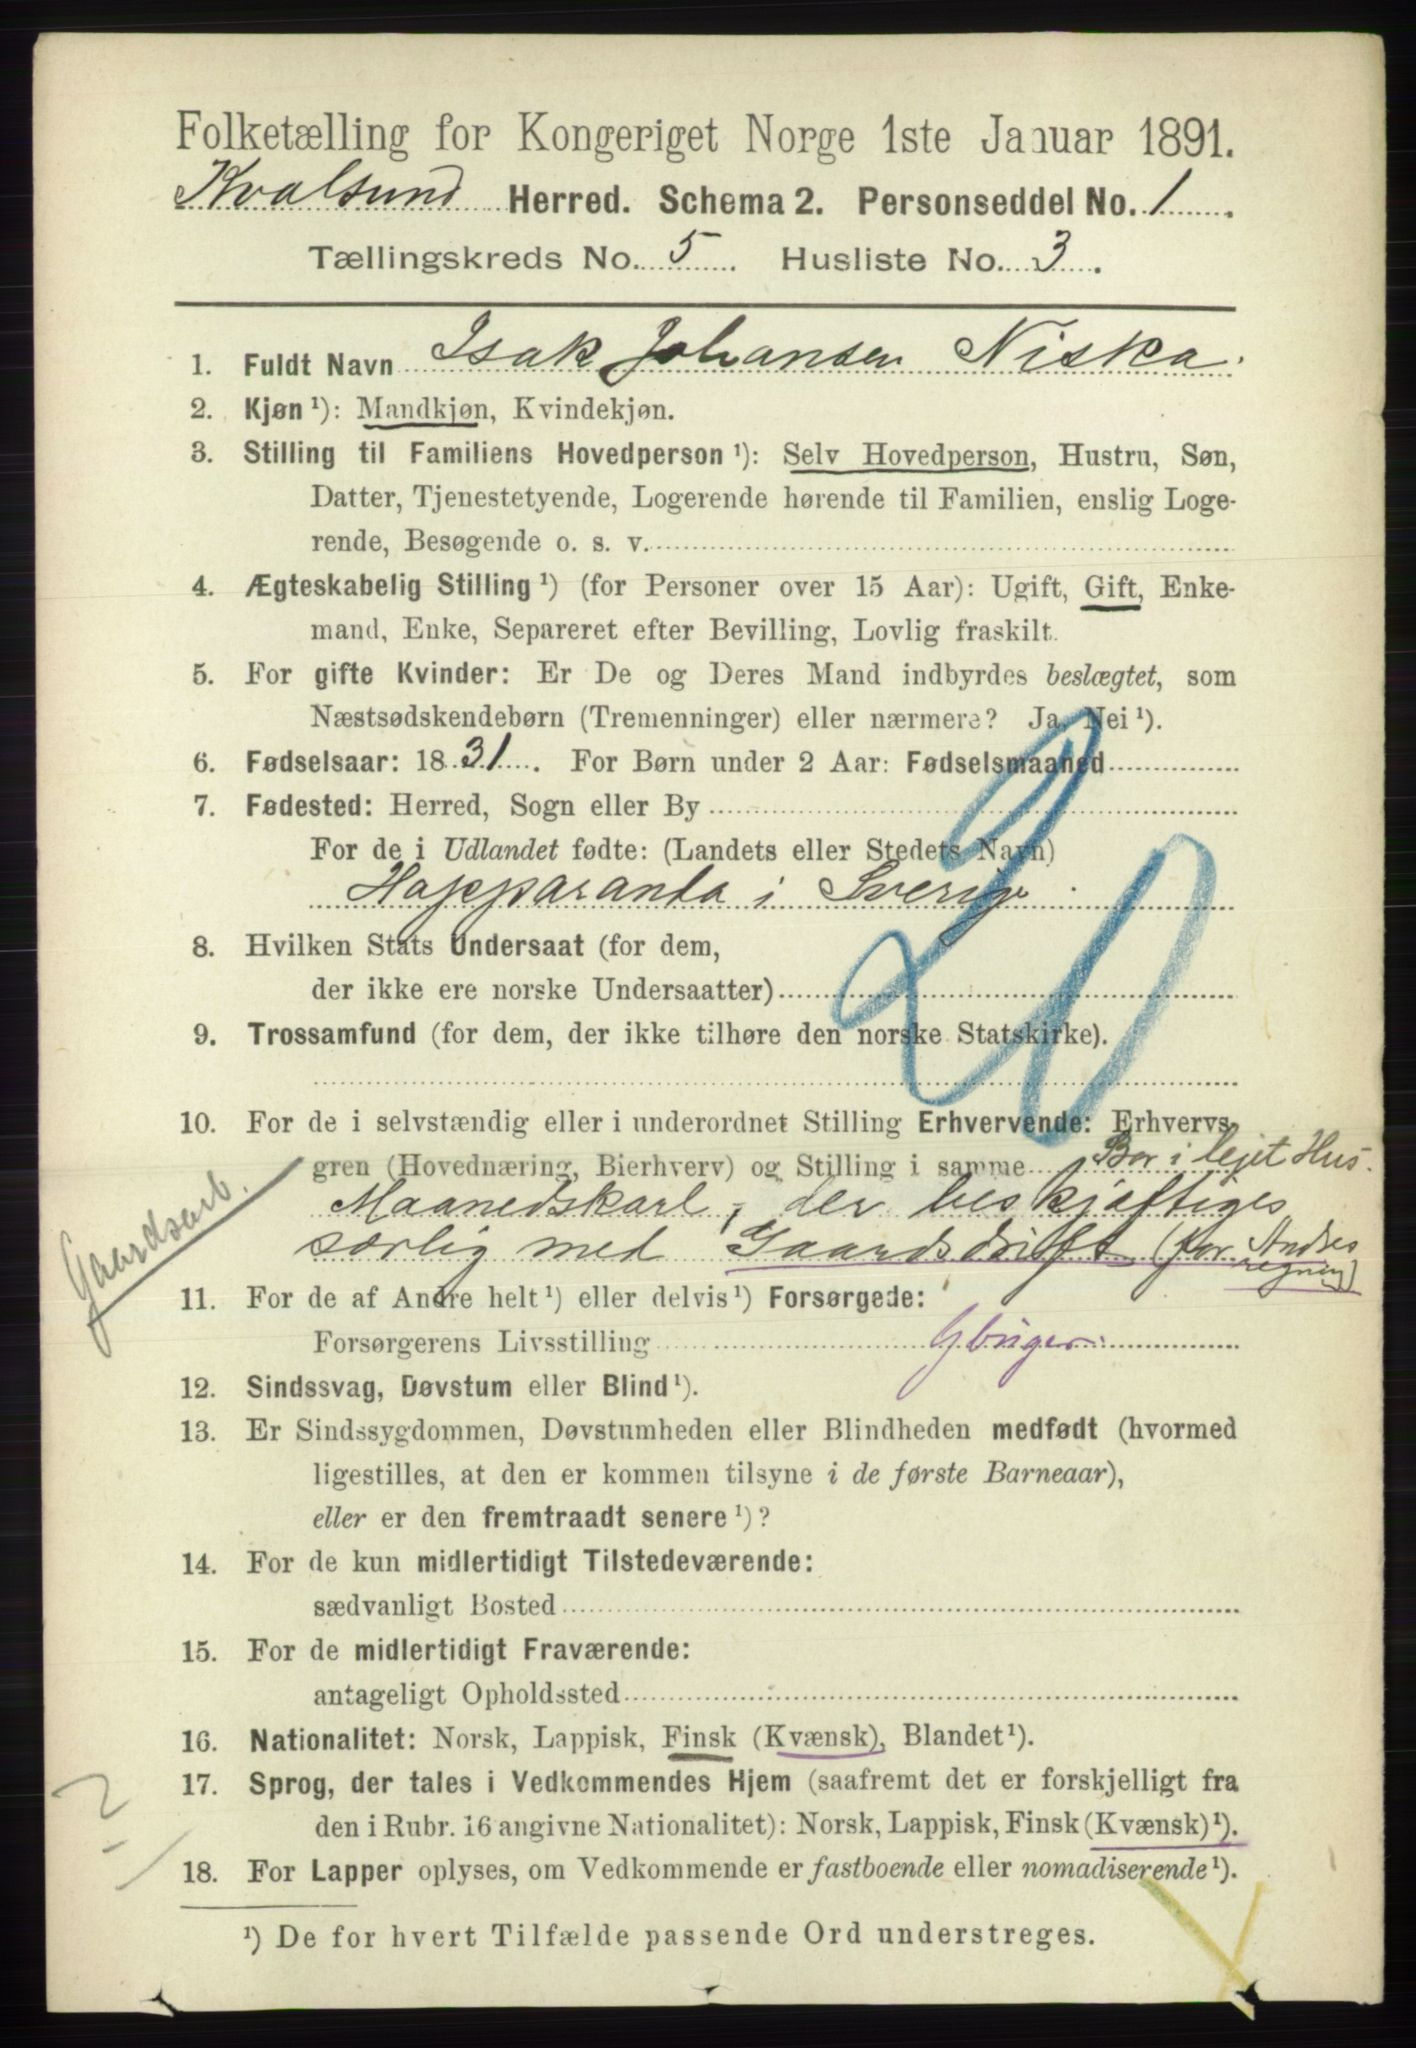 Folketælling for Kongeriget Norge 1ste Januar 1891.
Kvalsund Herred. Schema 2. Personseddel No. 1
Tællingskreds No. 5. Husliste No. 3.
1. Fuldt Navn Isak Johansen Niska.
2. Kjøn ¹): Mandkjøn, Kvindekjøn.
3. Stilling til Familiens Hovedperson ¹): Selv Hovedperson, Hustru, Søn,
Datter, Tjenestetyende, Logerende hørende til Familien, enslig Loge-
rende, Besøgende o. s. v.
4. Ægteskabelig Stilling ¹) (for Personer over 15 Aar): Ugift, Gift, Enke-
mand, Enke, Separeret efter Bevilling, Lovlig fraskilt.
5. For gifte Kvinder: Er De og Deres Mand indbyrdes beslægtet, som
Næstsødskendebørn (Tremenninger) eller nærmere? Ja, Nei ¹).
6. Fødselsaar: 1831. For Børn under 2 Aar: Fødselsmaaned
7. Fødested: Herred, Sogn eller By
For de i Udlandet fødte: (Landets eller Stedets Navn)
Happaranta i Sverig
20
8. Hvilken Stats Undersaat (for dem,
der ikke ere norske Undersaatter)
9. Trossamfund (for dem, der ikke tilhøre den norske Statskirke).
10. For de i selvstændig eller i underordnet Stilling Erhvervende: Erhvervs-
gren (Hovednæring, Bierhverv) og Stilling i samme Bor i lejet Hus.
Maanedskarl, der beskjæftiges
særlig med Gaardsdrift (for Andres
regning)
Gaardsarb.
11. For de af Andre helt ¹) eller delvis ¹) Forsørgede:
Forsørgerens Livsstilling
12. Sindssvag, Døvstum eller Blind ¹).
13. Er Sindssygdommen, Døvstumheden eller Blindheden medfødt (hvormed
ligestilles, at den er kommen tilsyne i de første Barneaar),
eller er den fremtraadt senere ¹)?
14. For de kun midlertidigt Tilstedeværende:
sædvanligt Bosted
15. For de midlertidigt Fraværende:
antageligt Opholdssted
16. Nationalitet: Norsk, Lappisk, Finsk (Kvænsk), Blandet ¹).
17. Sprog, der tales i Vedkommendes Hjem (saafremt det er forskjelligt fra
den i Rubr. 16 angivne Nationalitet): Norsk, Lappisk, Finsk (Kvænsk) ¹).
18. For Lapper oplyses, om Vedkommende er fastboende eller nomadiserende ¹).
¹) De for hvert Tilfælde passende Ord understreges.